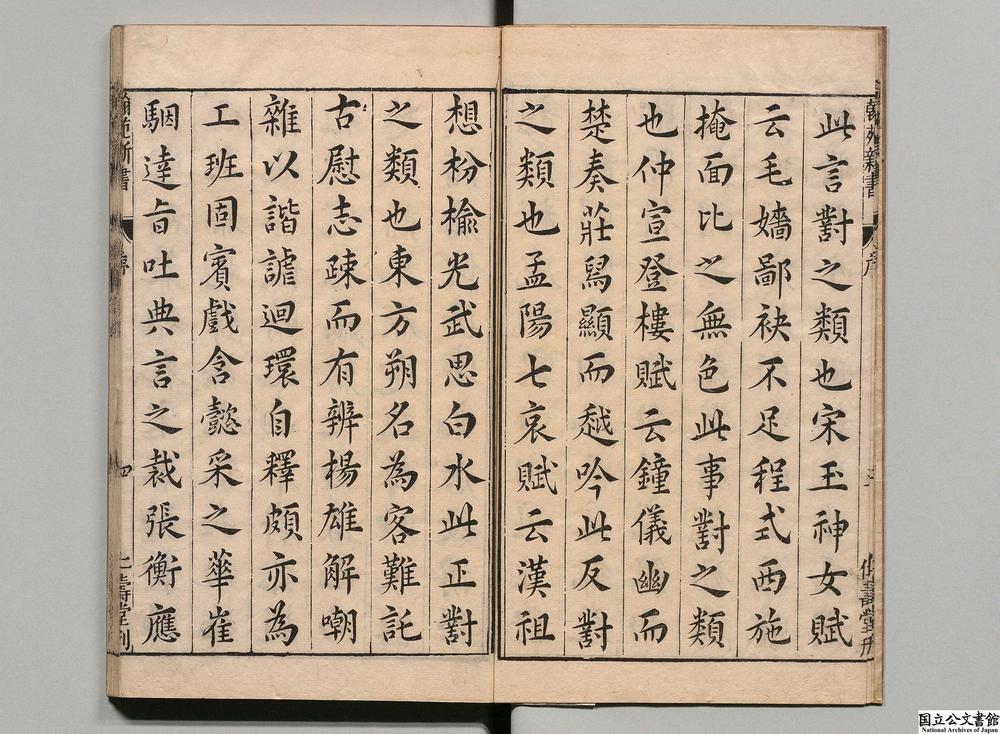 此言對之類也宋玉神女賦
云毛嬙鄙袂不足程式西施
掩面比之無色此事對之類
也仲宣登樓賦云鐘儀幽而
楚奏莊舄顯而越吟此反對
之類也孟陽七哀賦云漢祖
想枌榆光武思白水此正對
之類也東方朔名為客難託
古慰志疎而有辨楊雄解嘲
雜以諧謔迴環自釋頗亦為
工班固賓戲含懿采之華崔
駰達旨吐典言之裁張衡應
翰苑新書
序
四
仁壽堂刊
国立公文書館
National Archives of Japan